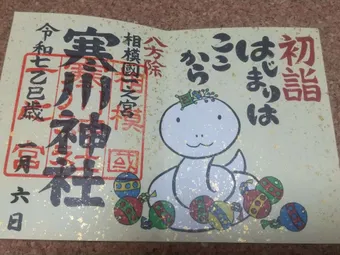 初詣
はじまりは
ここ
から
八方除
相模國一之宮
寒川神社
令和七乙巳歳 一月六日
相模國